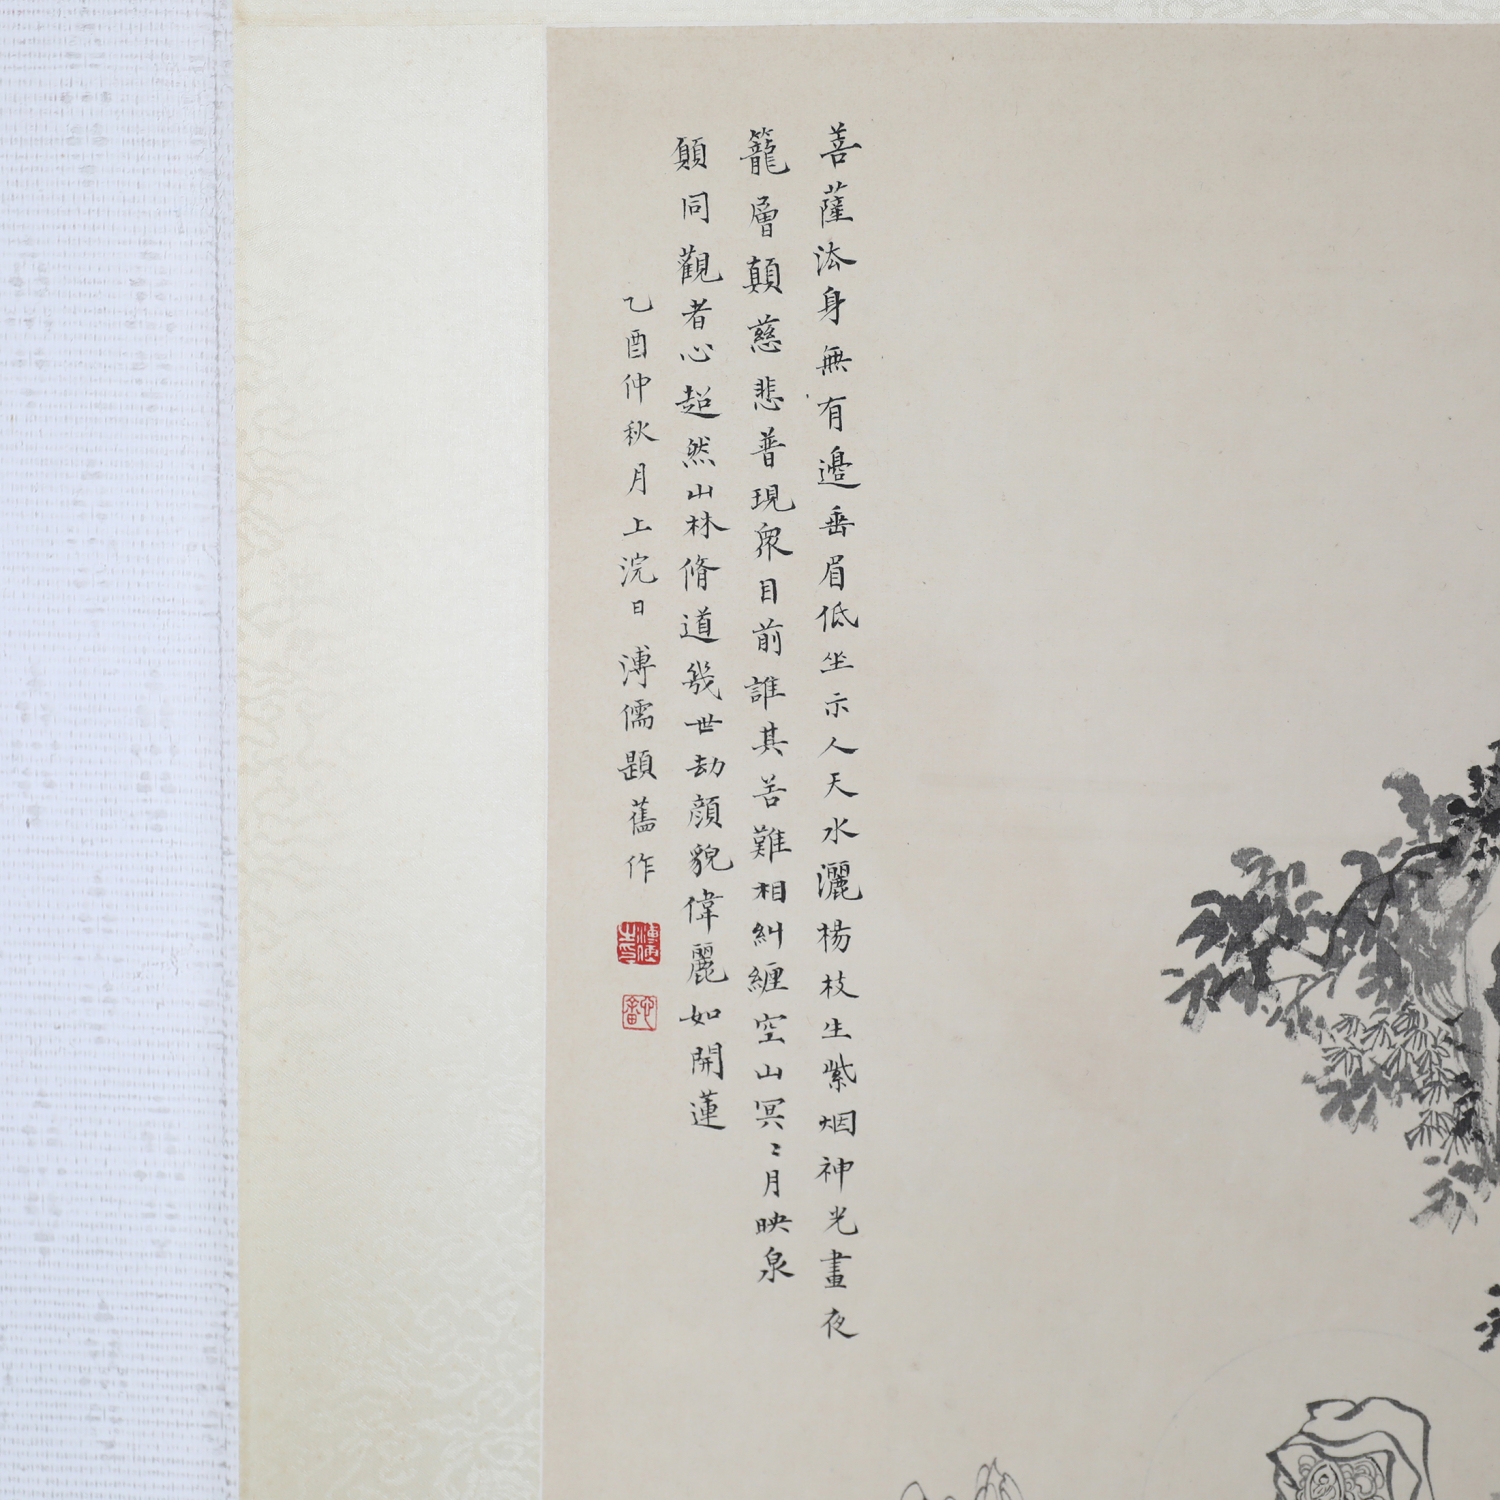 菩薩法身無有邊垂眉低坐示人天水灑楊枝生紫烟神光晝夜
籠層顛慈悲普現眾目前誰其苦難相糾纏空山冥〻月映泉
願同觀者心超然山林脩道幾世劫顏貌偉麗如開蓮
乙酉仲秋月上浣日溥儒題舊作
溥儒之印
心畬